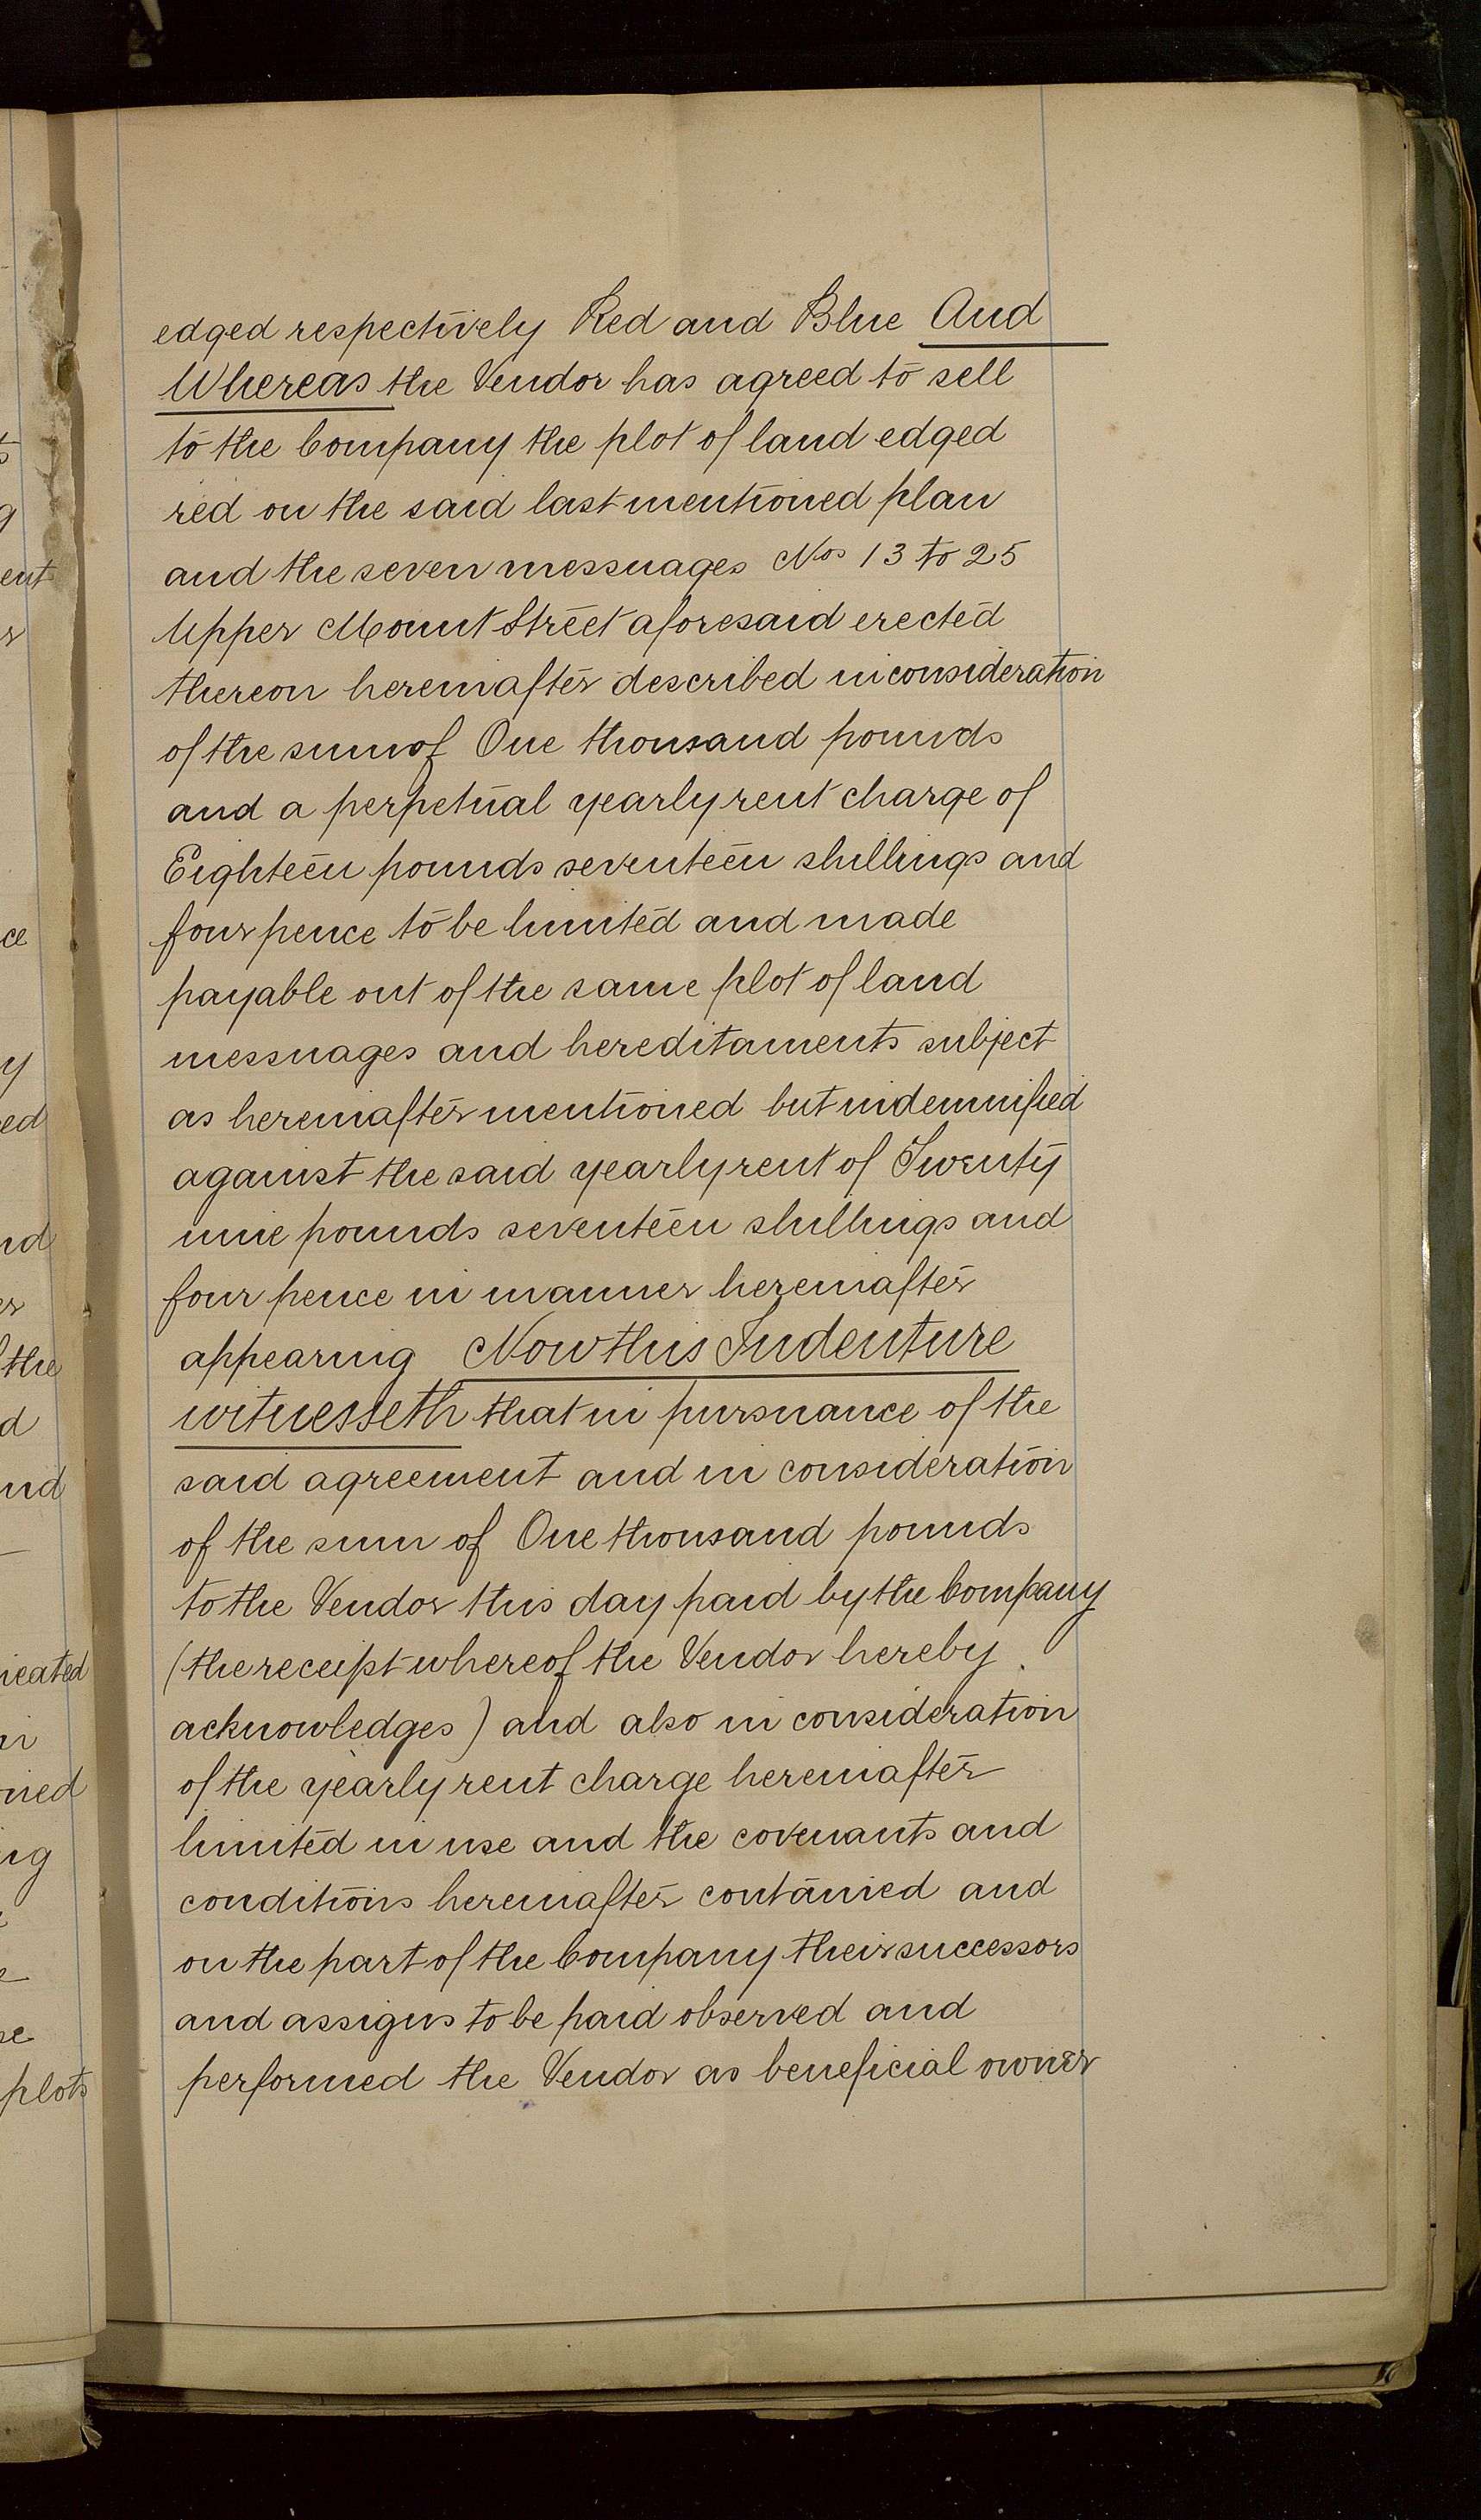 edged respectively Red and Blue And
Whereas the Vendor has agreed to sell
to the Company the plot of land edged
red on the said last mentioned plan
and the seven messuages Nos 13 to 25
Upper Mount Street aforesaid erected
thereon hereinafter described in consideration
of the sum of One thousand pounds
and a perpetual yearly rent charge of
Eighteen pounds seventeen shillings and
four pence to be limited and made
payable out of the same plot of land
messuages and hereditaments subject
as hereinafter mentioned but indemnified
against the said yearly rent of Twenty
nine pounds seventeen shillings and
four pence in manner hereinafter
appearing Now this Indenture
witnesseth that in pursuance of the
said agreement and in consideration
of the sum of One thousand pounds
to the Vendor this day paid by the Company
(the receipt whereof the Vendor hereby
acknowledges) and also in consideration
of the yearly rent charge hereinafter
limited in use and the covenants and
conditions hereinafter contained and
on the part of the Company their successors
and assigns to be paid observed and
performed the Vendor as beneficial owner